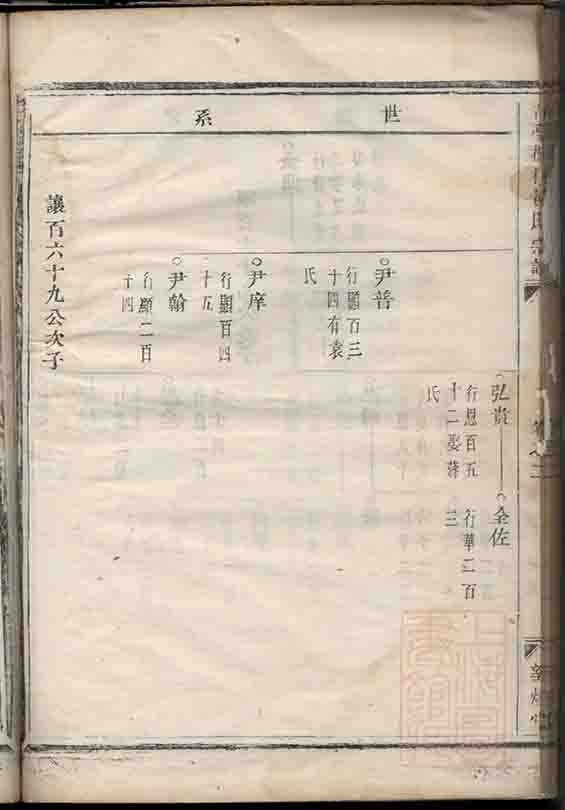 世系
弘貴
行恩百五
十二娶蔣
氏
全佐
行華二百
三
尹普
行顯百三
十四有袁
氏
尹庠
行顯百四
十五
尹翰
行顯二百
十四
讓百六十九公次子